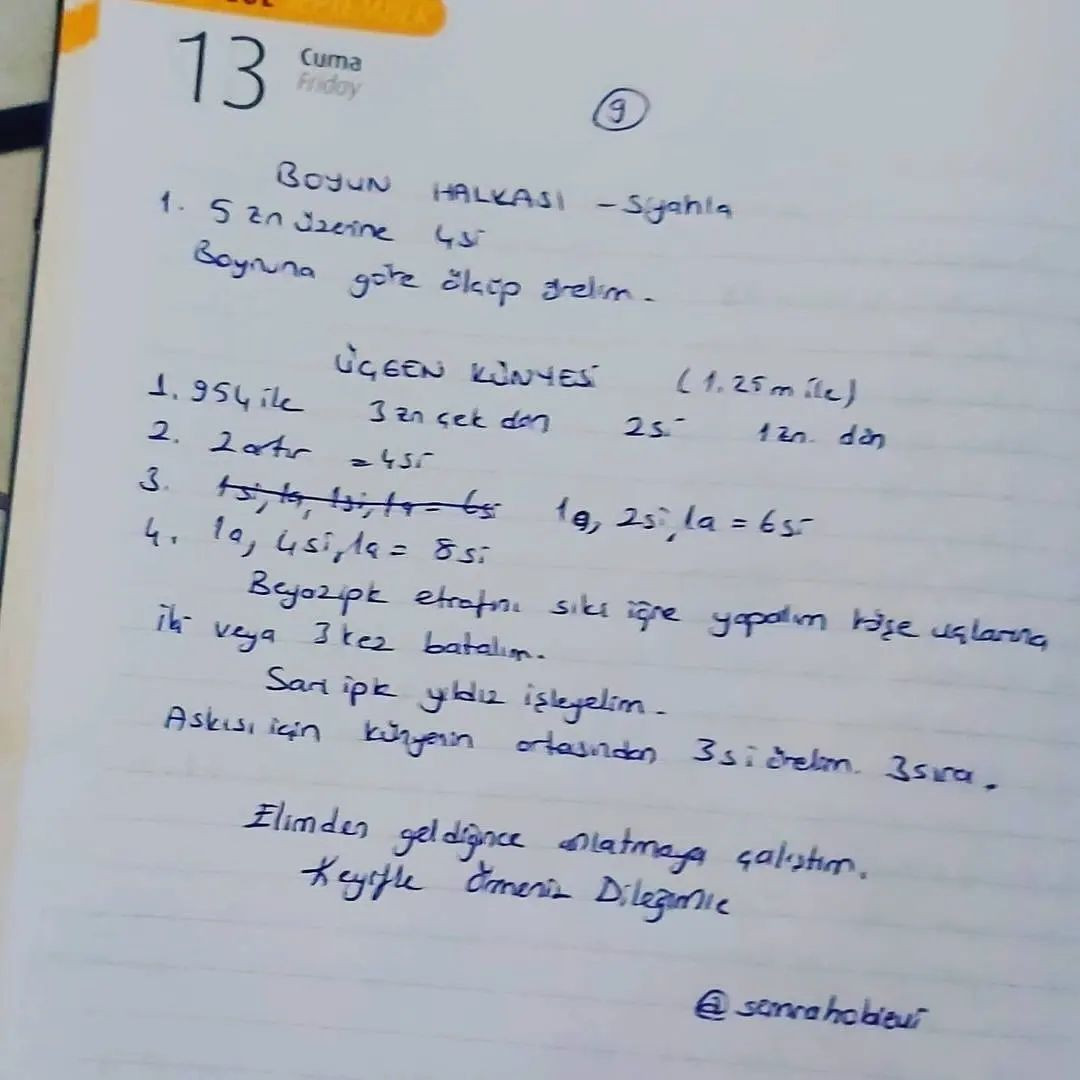 13 Cuma
Friday
9
BOYUN HALKASI - Siyahla
1. 5 zn üzerine 4si
Boynuna göre ölçüp örelim.
ÜÇGEN KÜNYESİ (1.25m ile)
1. 954 ile 3 zn çek dan 2si 1 zn. dön
2. 2 artır = 4si
3. 1si, 1a, 1si, 1a = 6si 1a, 2si, 1a = 6si
4. 1a, 4si, 1a = 8si
Beyaz ipk etrafını sık iğne yapalım köşe uçlarına
iki veya 3 kez batalım.
Sarı ipk yıldız işleyelim.
Askısı için künyenin ortasından 3si örelim. 3 sıra.
Elimden geldiğince anlatmaya çalıştım.
Keyifle örmeniz Dileğimle
@semrahobievi